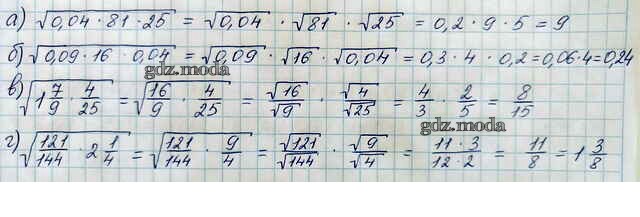 а) √(0,04 · 81 · 25) = √0,04 · √81 · √25 = 0,2 · 9 · 5 = 9
б) √(0,09 · 16 · 0,04) = √0,09 · √16 · √0,04 = 0,3 · 4 · 0,2 = 0,06 · 4 = 0,24
gdz.moda
в) √(1 7/9 · 4/25) = √(16/9 · 4/25) = √16/√9 · √4/√25 = 4/3 · 2/5 = 8/15
gdz.moda
г) √(121/144 · 2 1/4) = √(121/144 · 9/4) = √121/√144 · √9/√4 = 11 · 3/12 · 2 = 11/8 = 1 3/8